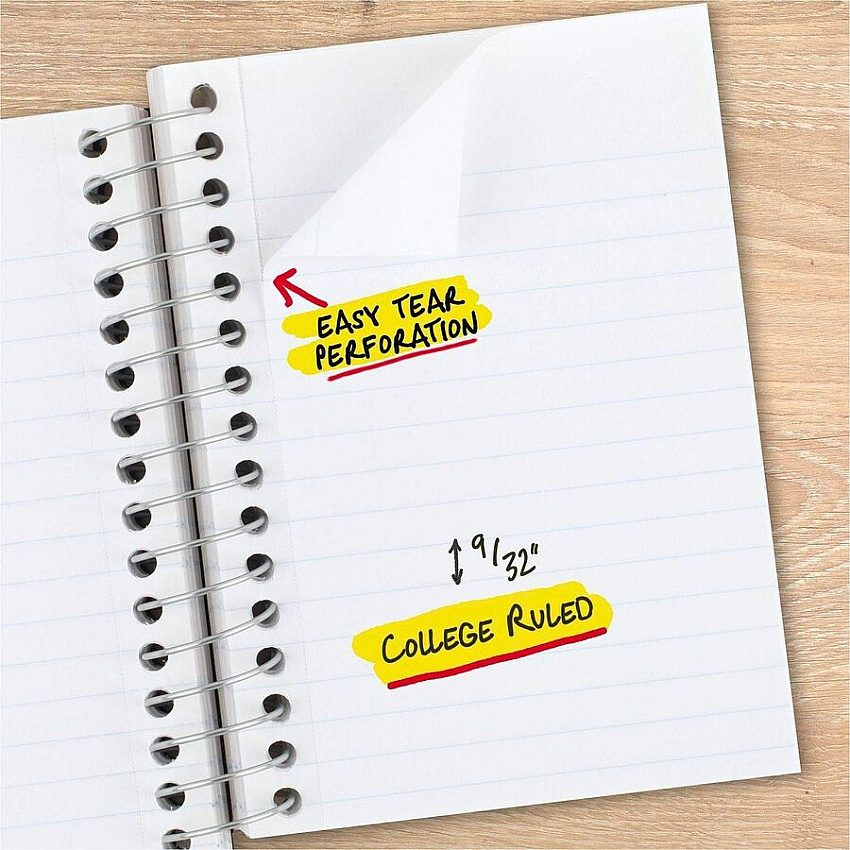 EASY TEAR
PERFORATION
9/32"
COLLEGE RULED